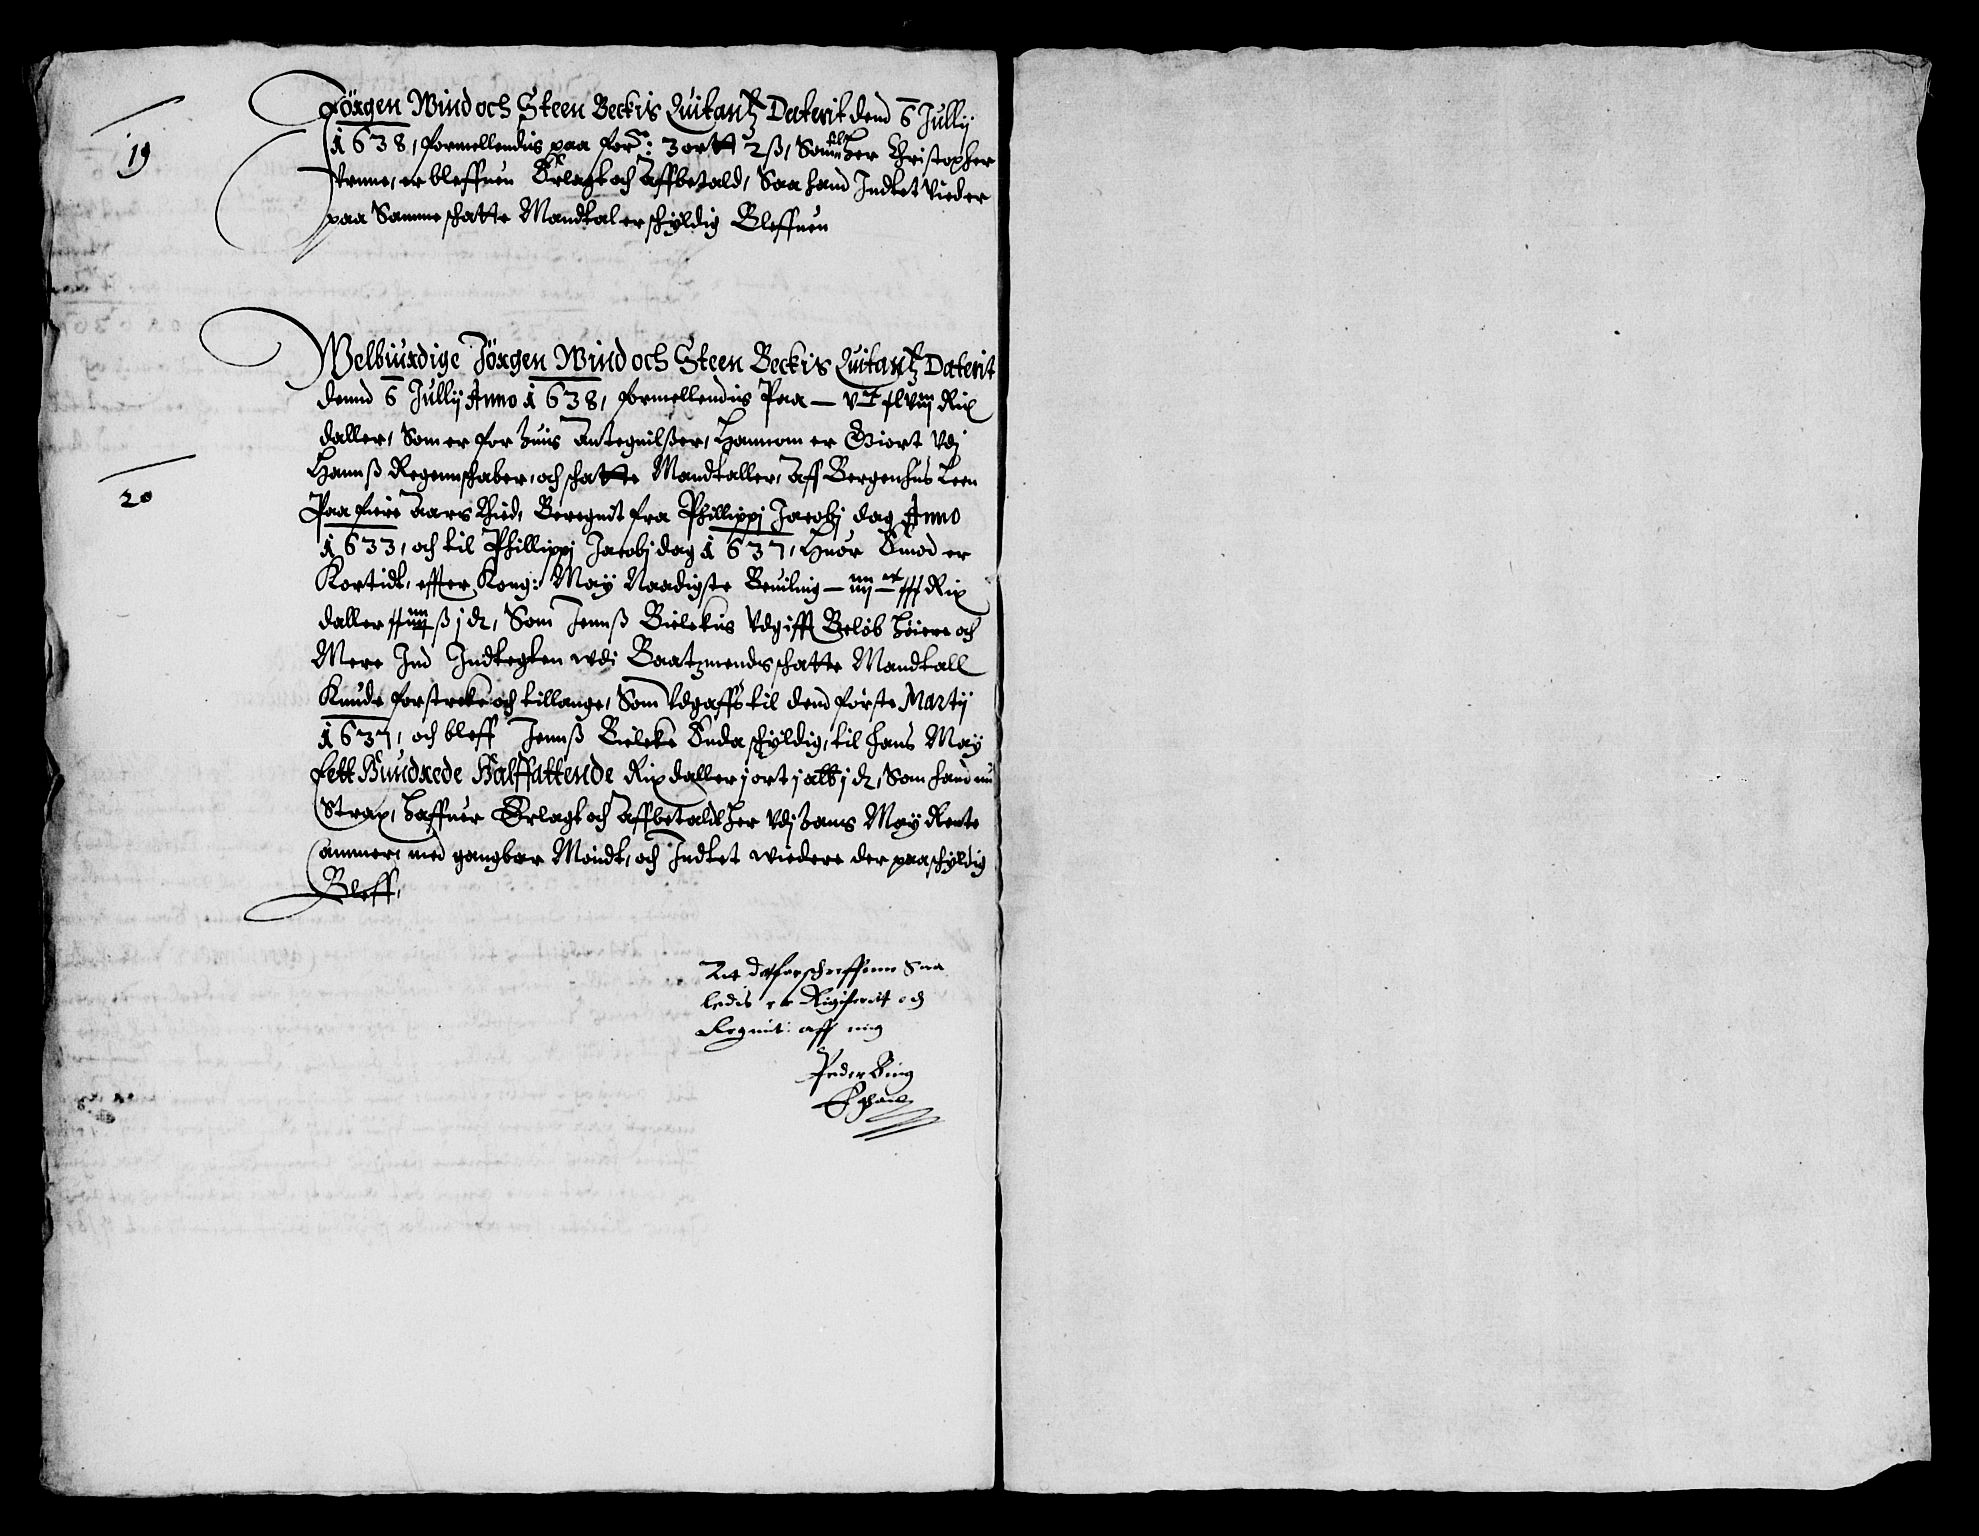 19
Jörgen Wind och Steen Beckis Quitantz Daterit dend 6 Jullij
1638, formellendis paa for: 3 ortt 2 ß, Som Her Christopher
Urnne, er bleffuen Erlagt och Affbetald, Saa hand Indtet Vieder
paa Samme schatte Mandtal er schyldig Bleffuen
20
Welbiurdige Jörgen Wind och Steen Beckis Quitantz Daterit
dennd 6 Jullij Anno 1638, formellendis Paa — Rix
daller, Som er for huis Antegnilßer, Hannom er Giort Vdj
Hannß Regennschaber, och schatte Mandtaller, Aff Bergenhus Leen
Paa fiere Aars Thid, Beregnit fra Phillippj Jacobj dag Anno
1633, och til Phillippj Jacobj dag 1637, Huor Emod er
Kortidt, effter Kong: May Naadigste Beuiling — Rix
daller ß j d, Som Jennß Bielckis Vdgifft Beløb høiere och
Mere Ind Indtegten wdi Baatzmends schatte Mandtall
Kunde forstrecke och tillange, Som Vdgaffs til dend første Martij
1637, och bleff Jennß Bielcke Enda schyldig, til Hans May
Sett Hundrede Halffattende Rix daller j ort j alb j d, Som hand nu
Strax, haffuer Erlagt och Affbetaldt her Vdj hans May Rente
Cammer, med gangbar Møndt, och Indtet wiedere der paa schyldig
Bleff,
At forschreffune Saa
ledis er Rigisterit och
Regnit: aff mig
Peder